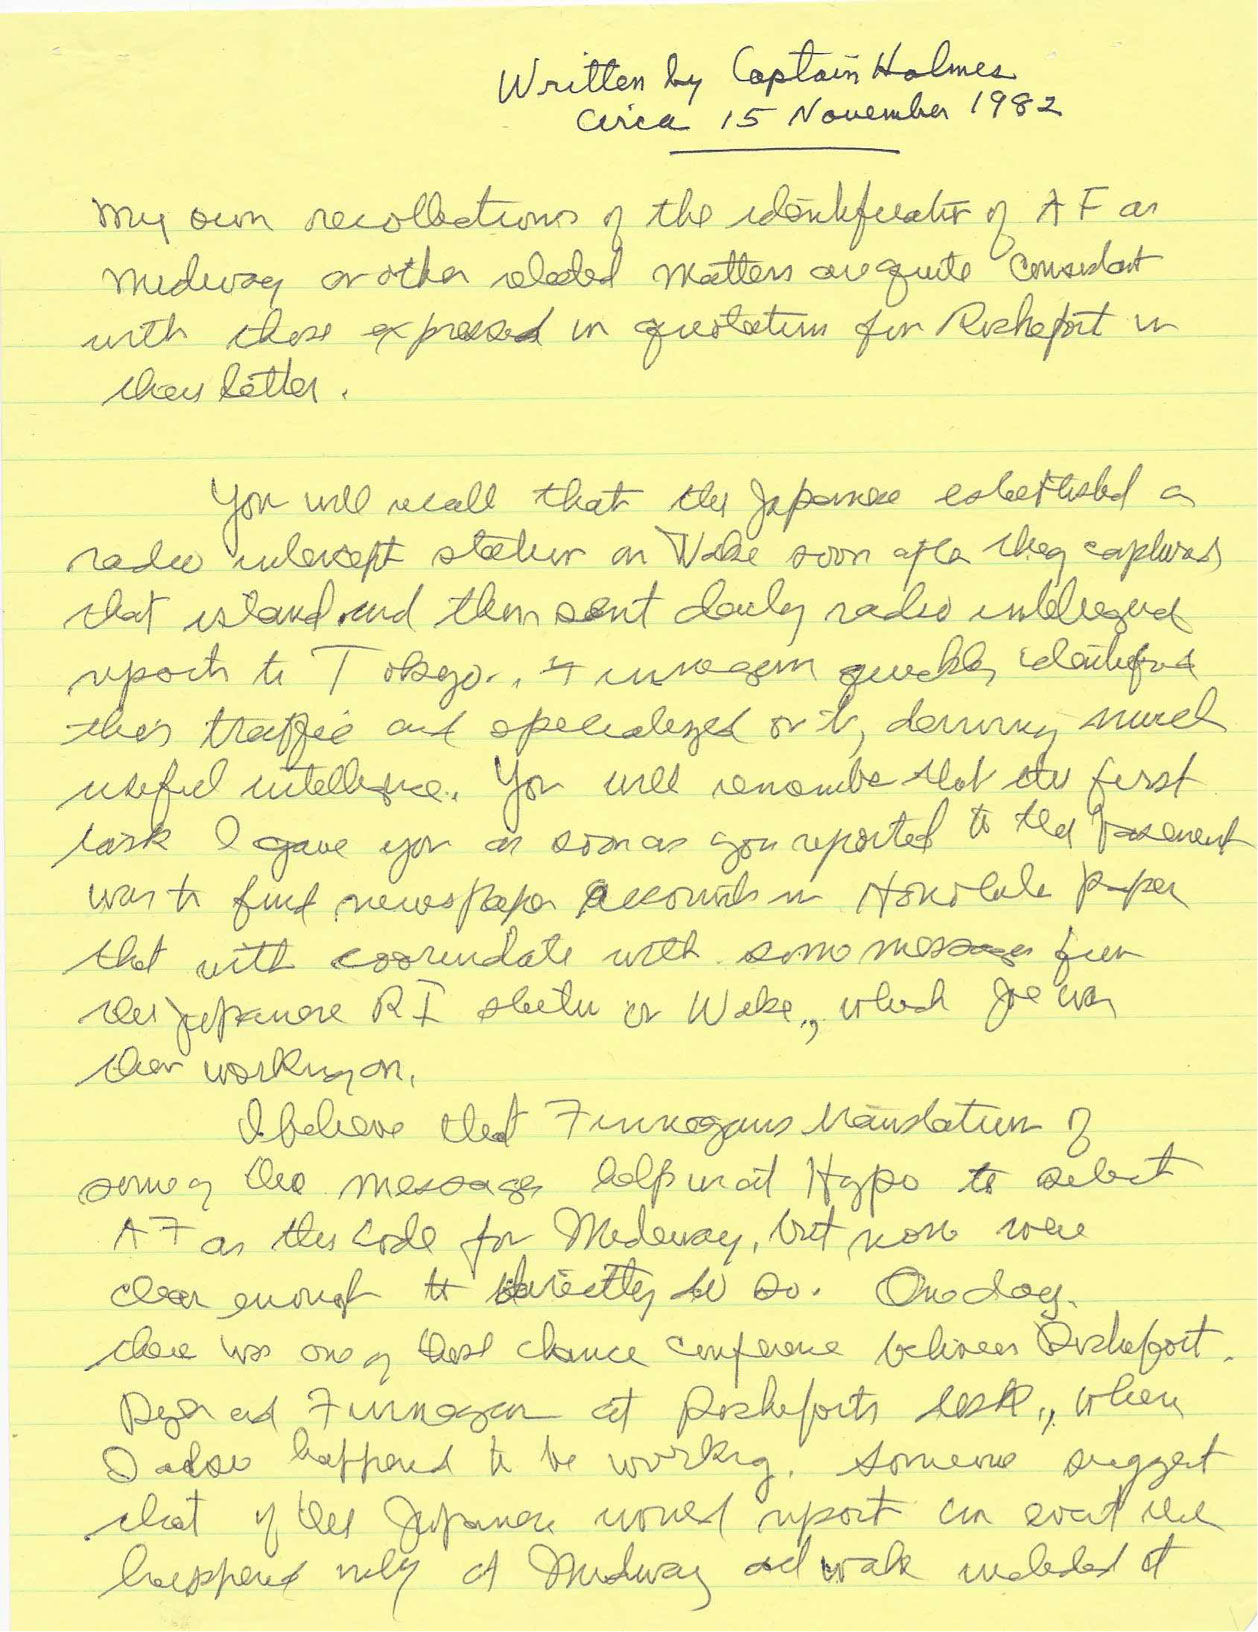 Written by Captain Holmes
Circa 15 November 1982
My own recollections of the identification of AF as
Midway or other related matters are quite consistent
with those expressed in quotations from Rochefort in
their letter.
You will recall that the Japanese established a
radio intercept station on Wake soon after they captured
that island and then sent daily radio intelligence
reports to Tokyo. Finnegan quickly identified
this traffic and specialized on it, deriving much
useful intelligence. You will remember that the first
task I gave you as soon as you reported to the basement
was to find newspaper accounts in Honolulu paper
that with coorindate with some message from
the Japanese RI station on Wake, which Joe was
then working on.
I believe that Finnegans translation of
some of the messages help us at Hypo to select
AF as the code for Midway, but none were
clear enough to directly do so. One day
there was one of those chance conference between Rochefort.
Dyer and Finnegan at Rocheforts desk, where
I also happened to be working. Someone suggest
that if the Japanese would report an event that
happened only at Midway and Wake included it